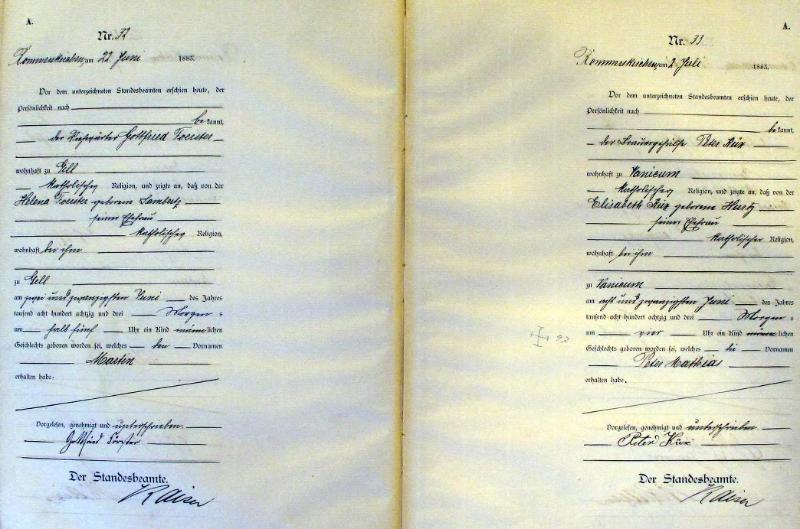 A.
Nr. 32
Rommerskirchen, am 22 Juni 1883.
Vor dem unterzeichneten Standesbeamten erschien heute, der
Persönlichkeit nach
be kannt,
der Gottfried Foerster
wohnhaft zu Gill
katholischer Religion, und zeigte an, daß von der
Helena Foerster geborene Lambertz
seiner Ehefrau
katholischer Religion,
wohnhaft bei ihm
zu Gill
am zwei und zwanzigsten Juni des Jahres
tausend acht hundert achtzig und drei Morgens
um halb fünf Uhr ein Kind männlichen
Geschlechts geboren worden sei, welches den Vornamen
Martin
erhalten habe.
Vorgelesen, genehmigt und unterschrieben
Gottfried Förster
Der Standesbeamte.
Kaiser
A.
Nr. 33
Rommerskirchen, am 2 Juli 1883.
Vor dem unterzeichneten Standesbeamten erschien heute, der
Persönlichkeit nach
be kannt,
der Peter
wohnhaft zu Vanicum
katholischer Religion, und zeigte an, daß von der
Elisabeth geborene
seiner Ehefrau
katholischer Religion,
wohnhaft bei ihm
zu Vanicum
am acht und zwanzigsten Juni des Jahres
tausend acht hundert achtzig und drei Morgens
um vier Uhr ein Kind männlichen
Geschlechts geboren worden sei, welches die Vornamen
Peter Mathias
erhalten habe.
Vorgelesen, genehmigt und unterschrieben
Peter
Der Standesbeamte.
Kaiser